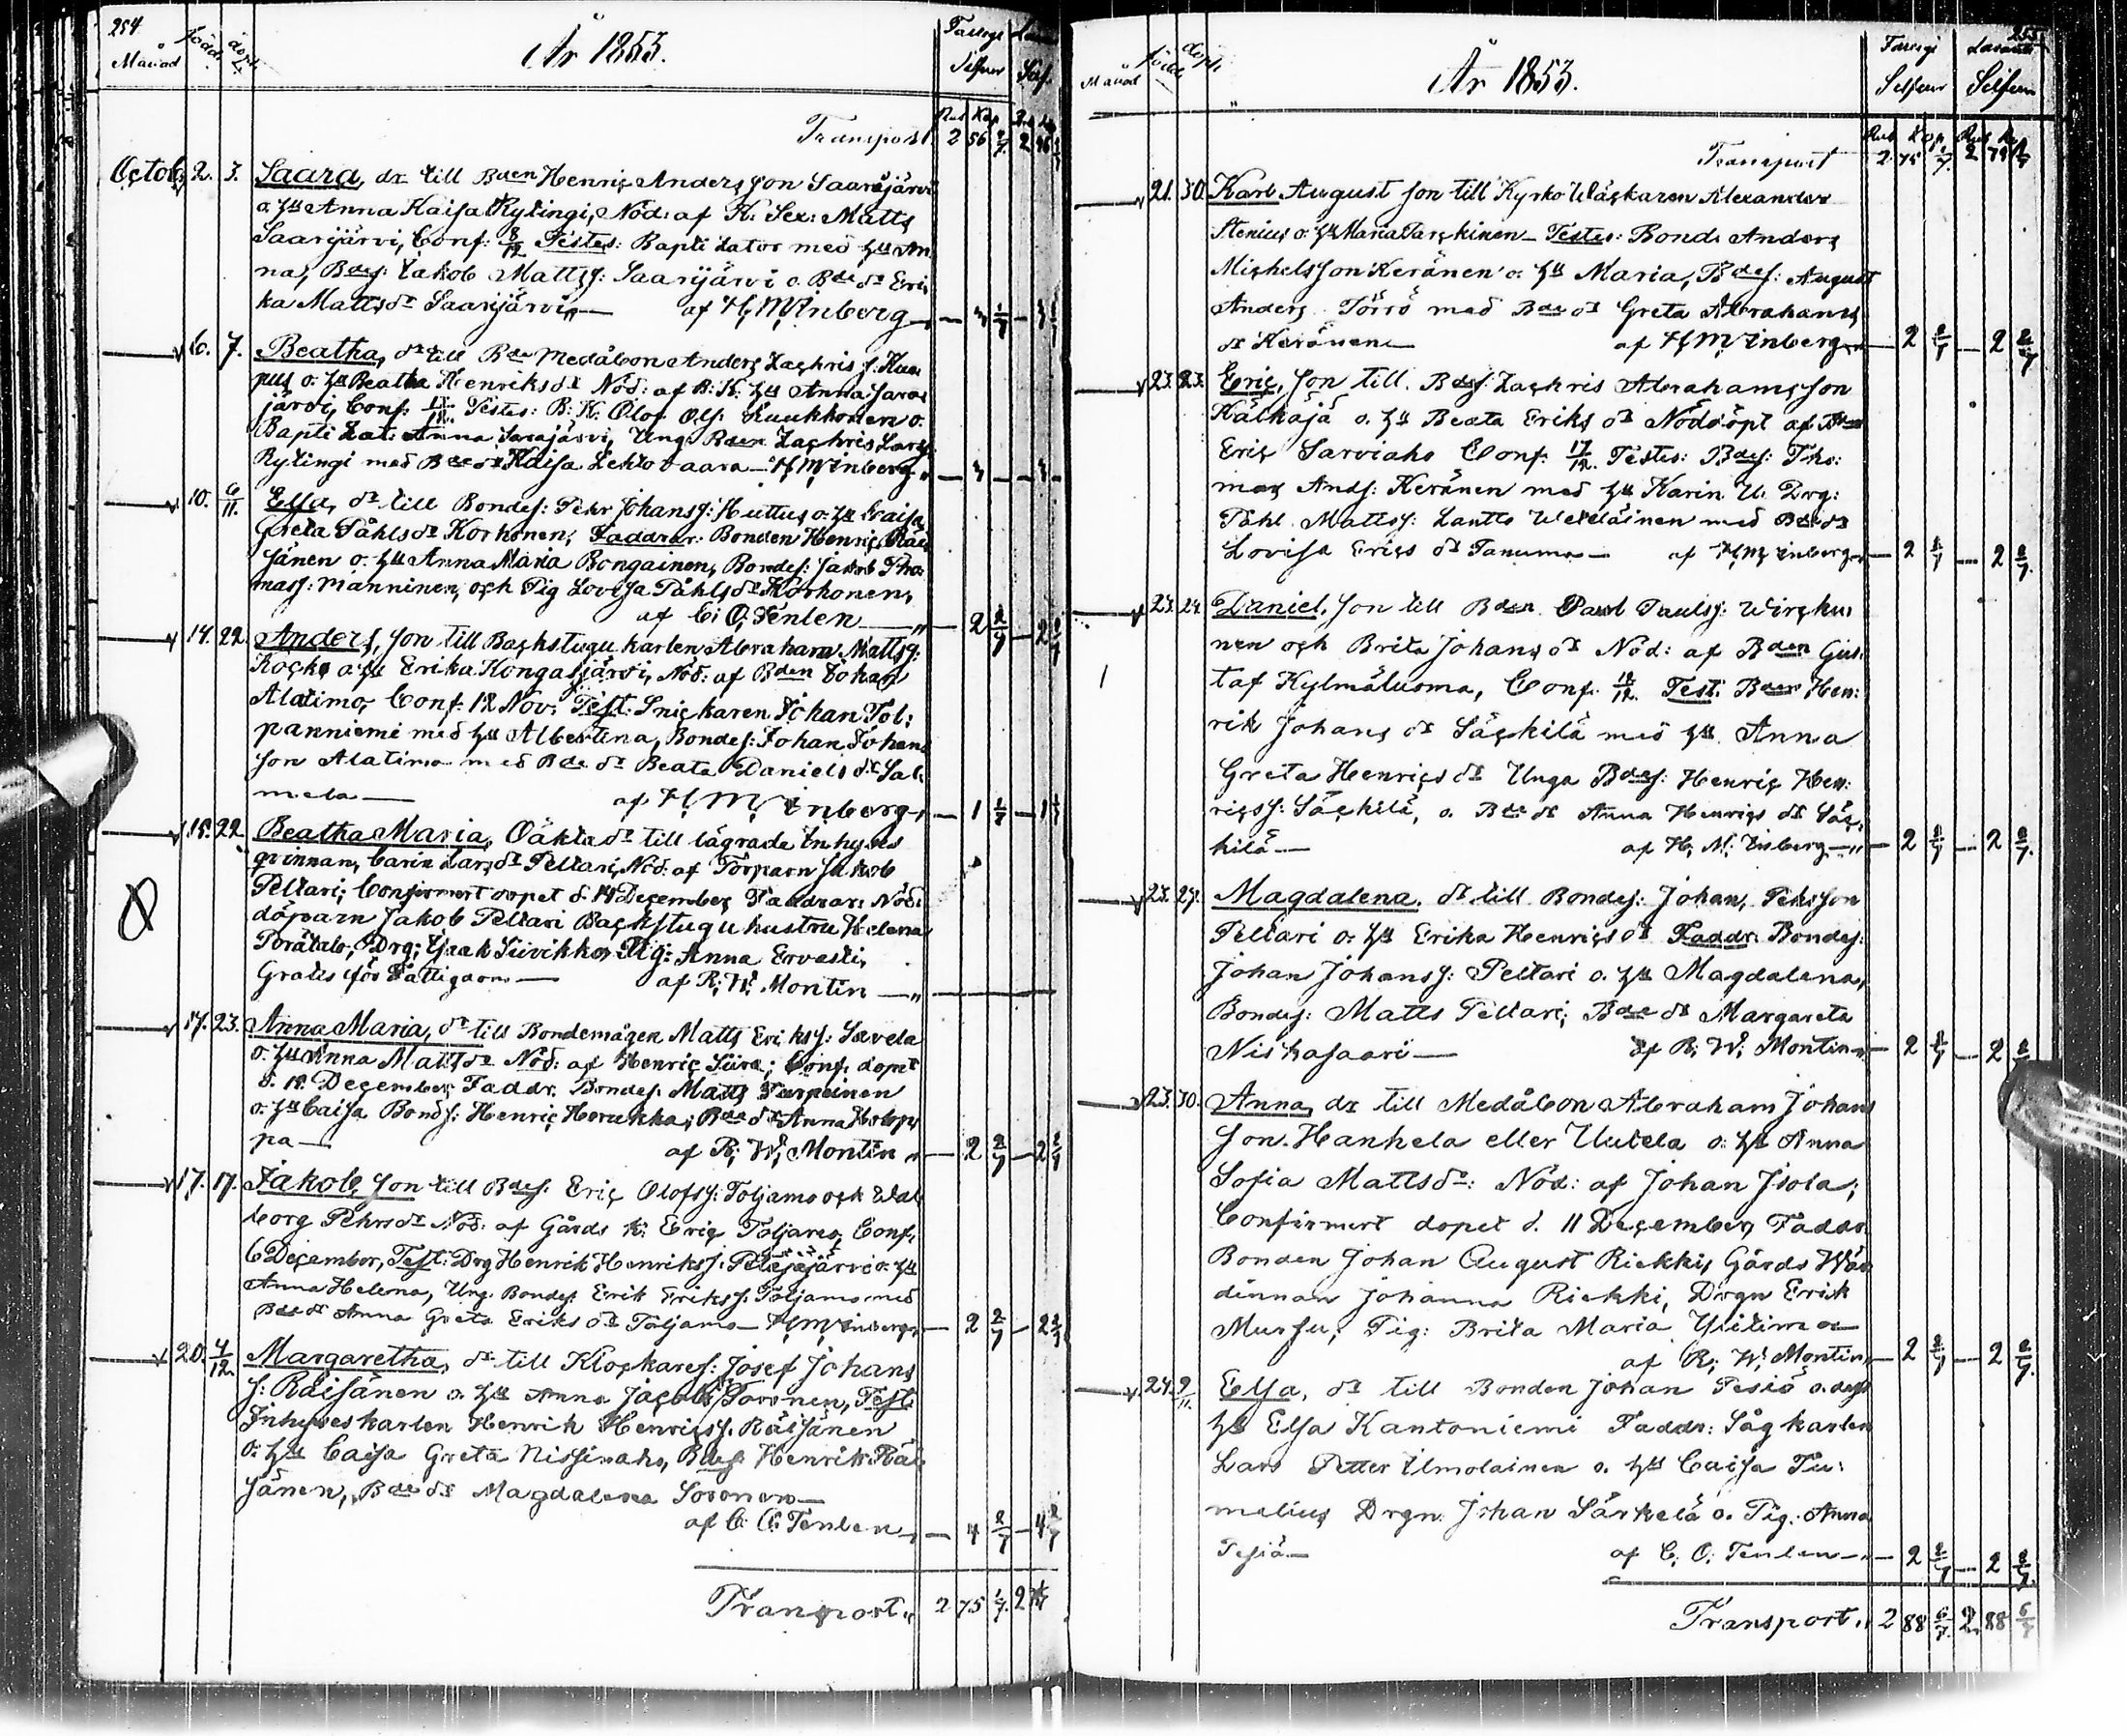 254.
Månad född. döpt.
År 1853.
Silfver
Rub Kop
Transport 2 56 2/7 2 56
October 2. 3. Saara, dr till Bden Henriç Andersson Saarijärvi
o. hu Anna Kaisa Rytingi, Nöd: af K: Sex: Matts
Saarijärvi, Conf: 8/12 Testes: Bapti zator med hu An
na, Bdes: Jakob Mattss: Saarijärvi o. Bde dr Eri
ka Matts dr Saarijärvi — af H M Inberg
6. 7. Beatha, dr till Bde Medåbon Anders Zachris s:
o. hu Beatha Henriks dr Nöd: af B: K: hu Anna Saras
järvi, Conf: Testes: B: K: Olof Ols: Kuukkonen o.
Bapti zat: Anna Sarajärvi, Ung: Bden Zachris Lars
Rytingi med Bde dr Kaisa Lehtovaara — H M Inberg
10. 6/11. Elsa, dr till Bondes: Pehr Johanss: Huttus o: hu Caisa
Greta Påhls dr Korhonen, Faddrar: Bonden Henriç Räi
sänen o: hu Anna Maria Bongainen, Bondes: Jakob Tho
mass: Manninen, och Pig Lovisa Påhls dr Korhonen,
af C: O: Fenlen — 2 2/7 — 2 2/7
14. 22. Anders, son till Backstugu karlen Abraham Matts s:
o. hu Erika Kongasjärvi, Nöd: af Bden Johan
Alatimo, Conf: 12 Nov: Test: Snickaren Johan Tol:
panniemi med hu Albertina, Bondes: Johan Johans
son Alatimo med Bde dr Beata Daniels dr Sal
mela — af H M Inberg — 1 1/7 — 1 1/7
15. 22. Beatha Maria, Oäkta dr till lägrade Inhyses
qvinnan, Carin Lars dr Peltari, Nöd: af Torparn Jakob
Peltari; Confirmert dopet d. 14 December Faddrar: Nöd:
döparn Jakob Peltari Backstugu hustru Helena
Porätalo, Drg: Isaak Siivikko, Pig: Anna Ervasti,
Gratis för Fattigdom — af R: W: Montin —
17. 23. Anna Maria, dr till Bondemågen Matts Eriks s: Savela
o. hu Anna Matts dr Nöd: af Henriç Siira; Conf: dopet
d. 18 December, Faddr. Bondes. Matts Turpeinen
o. hu Caisa Bonds: Henriç Horukka; Bde dr Anna Holap
pa — af R: W: Montin — 2 2/7 — 2 2/7
17. 17. Jakob, son till Bdes: Eriç Olofs s: Toljamo och Wal
borg Pehrs dr Nöd: af Gårds K: Eriç Toljamo, Conf,
6 December, Test: Drg Henrik Henriks s: Petäjäjärvi o: hu
Anna Helena, Ung. Bondes Erik Eriks s: Toljamo med
Bde dr Anna Greta Eriks dr Toljamo — H M Inberg — 2 2/7 — 2 2/7
20. 4/12. Margaretha, dr till Klockares: Josef Johans
s: Räisänen o. hu Anna Jacobs dr Soronen, Test:
Inhyseskarlen Henrik Henriçs s. Räisänen
o: hu Caisa Greta Nissinaho, Bdes: Henrik Räi
sänen, Bde dr Magdalena Soronen —
af C: O: Fenlen — 4 2/7 — 4 2/7
Transport 2 75 1/7. 2
255
Månad född döpt.
År 1853.
Silfver Silfver
Rub Kop. Rub K
Transport 2 75 1/7. 2 75 1/7
21. 30. Karl August son till Kyrko Wäckaren Alexander
Stenius o: hu Maria Tarçkinen — Testes: Bonde Anders
Michelsson Keränen o: hu Maria, Bdes: August
Anders Törrö med Bde dr Greta Abrahams
dr Keränen — af H M Inberg — 2 2/7 — 2 2/7
23. 23. Eriç, son till. Bdes: Zachris Abrahamsson
Kälkäjä o. hu Beata Eriks dr Nöddöpt af Bden
Eriç Sarviaho Conf: 17/12. Testes: Bdes: Tho:
mas Ands: Keränen med hu Karin U. Drg:
Påhl Mattss: Lantto Weteläinen med Bde dr
Lovisa Eriçs dr Tanuma — af H M Inberg — 2 2/7 — 2 2/7.
23. 24. Daniel, son till Bden Paul Pauls s: Wirçku
nen och Brita Johans dr Nöd: af Bden Gus
taf Kylmäluoma, Conf: 18/12. Test: Bden Hen:
rik Johans dr Säçkilä med hu Anna
Greta Henriçs dr Unga Bdes: Henriç Hen:
riçs s: Säçkilä, o. Bde dr Anna Henriçs dr Säç
kilä — af H. M: Inberg — 2 2/7 — 2 2/7.
23. 27. Magdalena, dr till Bondes: Johan Pehrsson
Peltari o: hu Erika Henriçs dr Faddr: Bondes:
Johan Johans s: Peltari o. hu Magdalena,
Bondes: Matts Peltari; Bde dr Margareta
Niskasaari — af R: W: Montin — 2 2/7 — 2 2/7
23. 30. Anna, dr till Medåbon Abraham Johans
son Hanhela eller Uutela o: hu Anna
Sofia Matts dr: Nöd: af Johan Isola;
Confirmert dopet d. 11 December, Faddr.
Bonden Johan August Riekki, Gårds Wär
dinnan Johanna Riekki, Drgn Erik
Mursu; Pig: Brita Maria Ylitimo —
af R: W: Montin — 2 2/7 — 2 2/7.
24. 9/11. Elsa, dr till Bonden Johan Pesiö o. dess
hu Elsa Kantoniemi Faddr: Såg karlen
Lars Petter Ilmolainen o. hu Caisa Tu:
melius Drgn: Johan Särkelä o. Pig: Anna
Pesiö — af C. O: Fenlen — 2 2/7 — 2 2/7.
Transport 2 88 6/7. 2. 88 6/7